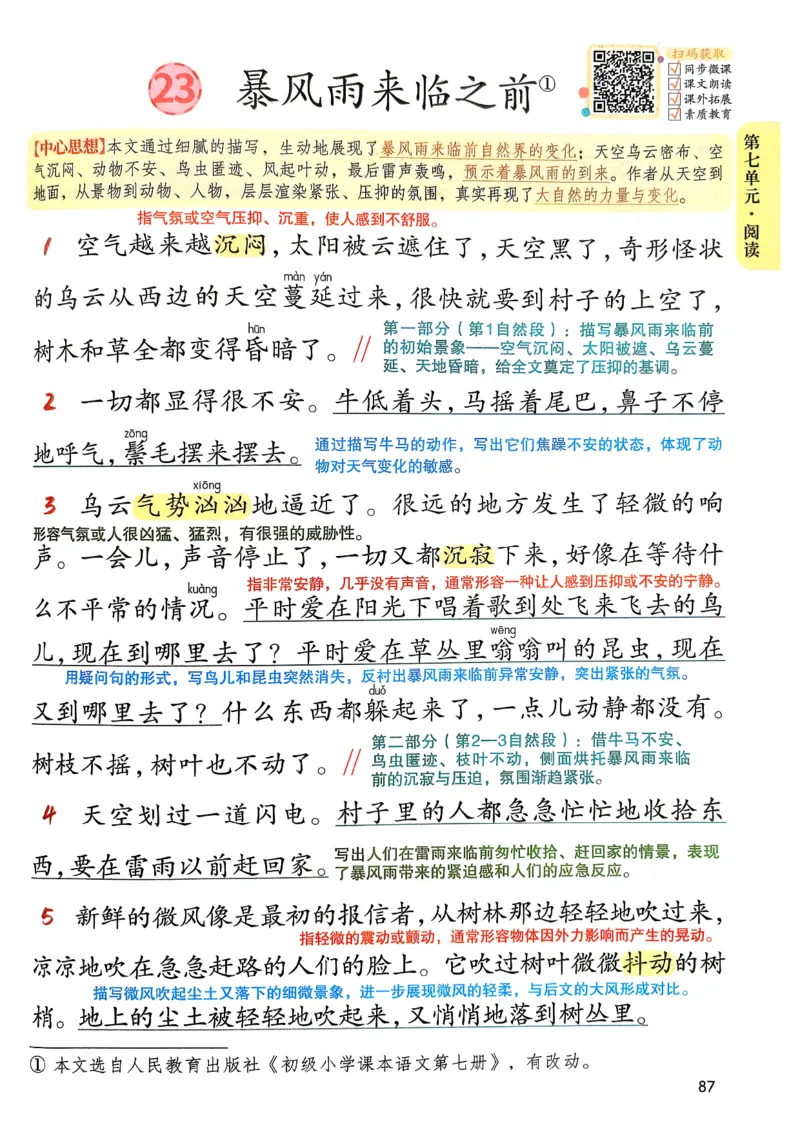 23 暴风雨来临之前①
扫码获取
同步微课
课文朗读
课外拓展
素质教育
第七单元·阅读
【中心思想】本文通过细腻的描写，生动地展现了暴风雨来临前自然界的变化：天空乌云密布、空
气沉闷、动物不安、鸟虫匿迹、风起叶动，最后雷声轰鸣，预示着暴风雨的到来。作者从天空到
地面，从景物到动物、人物，层层渲染紧张、压抑的氛围，真实再现了大自然的力量与变化。
指气氛或空气压抑、沉重，使人感到不舒服。
1 空气越来越沉闷，太阳被云遮住了，天空黑了，奇形怪状
màn yán
的乌云从西边的天空蔓延过来，很快就要到村子的上空了，
hūn
树木和草全都变得昏暗了。//
第一部分（第1自然段）：描写暴风雨来临前
的初始景象——空气沉闷、太阳被遮、乌云蔓
延、天地昏暗，给全文奠定了压抑的基调。
2 一切都显得很不安。牛低着头，马摇着尾巴，鼻子不停
zōng
地呼气，鬃毛摆来摆去。
通过描写牛马的动作，写出它们焦躁不安的状态，体现了动
物对天气变化的敏感。
xiōng
3 乌云气势汹汹地逼近了。很远的地方发生了轻微的响
形容气氛或人很凶猛、猛烈，有很强的威胁性。
声。一会儿，声音停止了，一切又都沉寂下来，好像在等待什
kuàng
指非常安静，几乎没有声音，通常形容一种让人感到压抑或不安的宁静。
么不平常的情况。平时爱在阳光下唱着歌到处飞来飞去的鸟
wēng
儿，现在到哪里去了？平时爱在草丛里嗡嗡叫的昆虫，现在
用疑问句的形式，写鸟儿和昆虫突然消失，反衬出暴风雨来临前异常安静，突出紧张的气氛。
duǒ
又到哪里去了？什么东西都躲起来了，一点儿动静都没有。
树枝不摇，树叶也不动了。//
第二部分（第2—3自然段）：借牛马不安、
鸟虫匿迹、枝叶不动，侧面烘托暴风雨来临
前的沉寂与压迫，氛围渐趋紧张。
4 天空划过一道闪电。村子里的人都急急忙忙地收拾东
西，要在雷雨以前赶回家。
写出人们在雷雨来临前匆忙收拾、赶回家的情景，表现
了暴风雨带来的紧迫感和人们的应急反应。
5 新鲜的微风像是最初的报信者，从树林那边轻轻地吹过来，
指轻微的震动或颤动，通常形容物体因外力影响而产生的晃动。
凉凉地吹在急急赶路的人们的脸上。它吹过树叶微微抖动的树
描写微风吹起尘土又落下的细微景象，进一步展现微风的轻柔，与后文的大风形成对比。
梢。地上的尘土被轻轻地吹起来，又悄悄地落到树丛里。
① 本文选自人民教育出版社《初级小学课本语文第七册》，有改动。
87